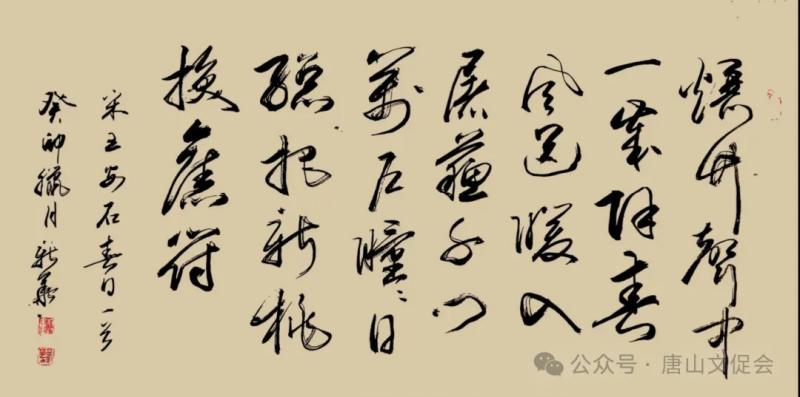 爆竹聲中
一歲除春
风送暖入
屠蘇千门
萬户曈々日
總把新桃
换舊符
宋王安石春日一首
癸卯臘月新
公众号 · 唐山文促会